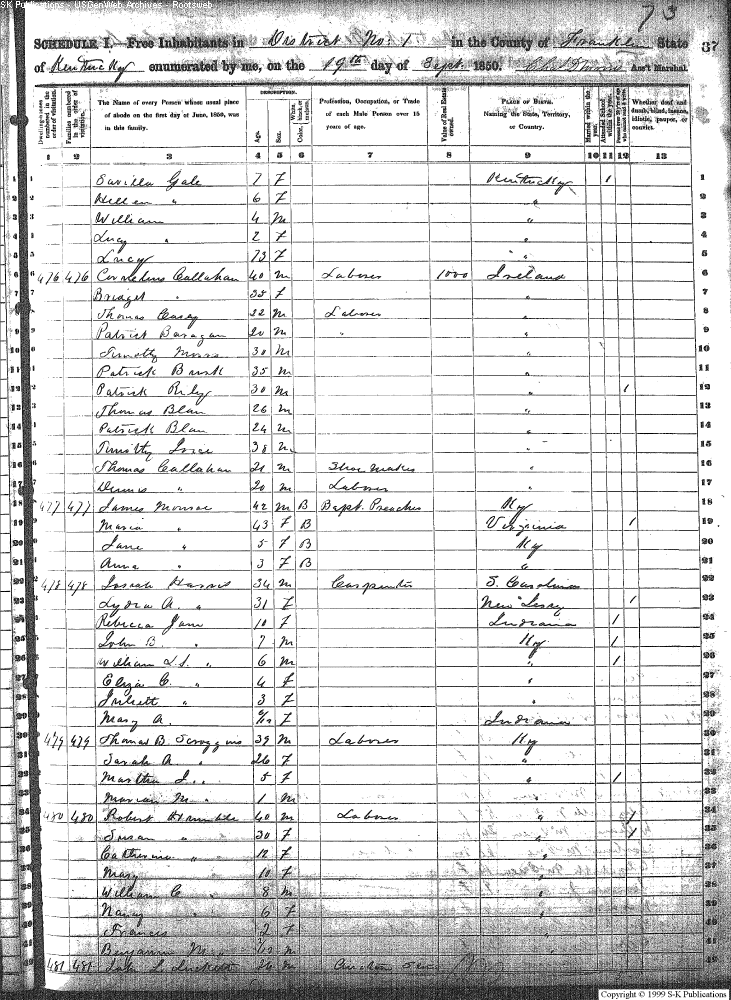 S-K Publications - USGenWeb Archives - Rootsweb
73
SCHEDULE I.—Free Inhabitants in District No. 1 in the County of Franklin State 37
of Kentucky enumerated by me, on the 19th day of Sept. 1850. Ass't Marshal.
Dwelling-houses numbered in the order of visitation.
Families numbered in the order of visitation.
The Name of every Person whose usual place of abode on the first day of June, 1850, was in this family.
DESCRIPTION.
Age.
Sex.
White, black, or mulatto.
Color,
Profession, Occupation, or Trade of each Male Person over 15 years of age.
Value of Real Estate owned.
PLACE OF BIRTH. Naming the State, Territory, or Country.
Married within the year.
Attended School within the year.
Whether deaf and dumb, blind, insane, idiotic, pauper, or convict.
1 2 3 4 5 6 7 8 9 10 11 12 13
1 Savilla Gale 7 F Kentucky 1 1
2 Hellen " 6 F " 2
3 William 4 M " 3
4 Lucy " 2 F " 4
5 Lucy 73 F " 5
6 476 476 Cornelius Callahan 40 M Laborer 1000 Ireland 6
7 Bridget " 35 F " 7
8 Thomas Casey 22 M Laborer " 8
9 Patrick 20 M " " 9
10 Timothy 30 M " 10
11 Patrick 35 M " 11
12 Patrick Rily 30 M " 1 12
13 Thomas Blan 26 M " 13
14 Patrick Blan 24 M " 14
15 Timothy 38 M " 15
16 Thomas Callahan 21 M Shoe Maker " 16
17 Dennis " 20 M Laborer " 17
18 477 477 James Monroe 42 M B Bapt. Preacher Ky 18
19 Maria " 43 F B Virginia 1 19
20 Jane " 5 F B Ky 20
21 Anna " 3 F B " 21
22 478 478 Josiah Harris 34 M Carpenter S. Carolina 22
23 Lydia A. " 31 F New Jersy 1 23
24 Rebecca Jane 10 F Indiana 1 24
25 John B. " 7 M Ky 1 25
26 William L.S. " 6 M " 1 26
27 Eliza C. " 4 F " 27
28 Juliett " 3 F " 28
29 Mary A. F Indiana 29
30 479 479 Thomas B. Scroggins 39 M Laborer Ky 30
31 Sarah A " 26 F " 31
32 Martha J. " 5 F " 1 32
33 Marian M " 1 M " 33
34 480 480 Robert 40 M Laborer " 1 34
35 Susan " 30 F 1 35
36 Catherine " 12 F " 36
37 Mary 10 F 37
38 William C " 8 M " 38
39 Nancy " 6 F 39
40 Francis " 2 F 40
41 Benjamin M " M 41
42 481 481 John L. Luckett 26 M 42
Copyright © 1999 S-K Publications